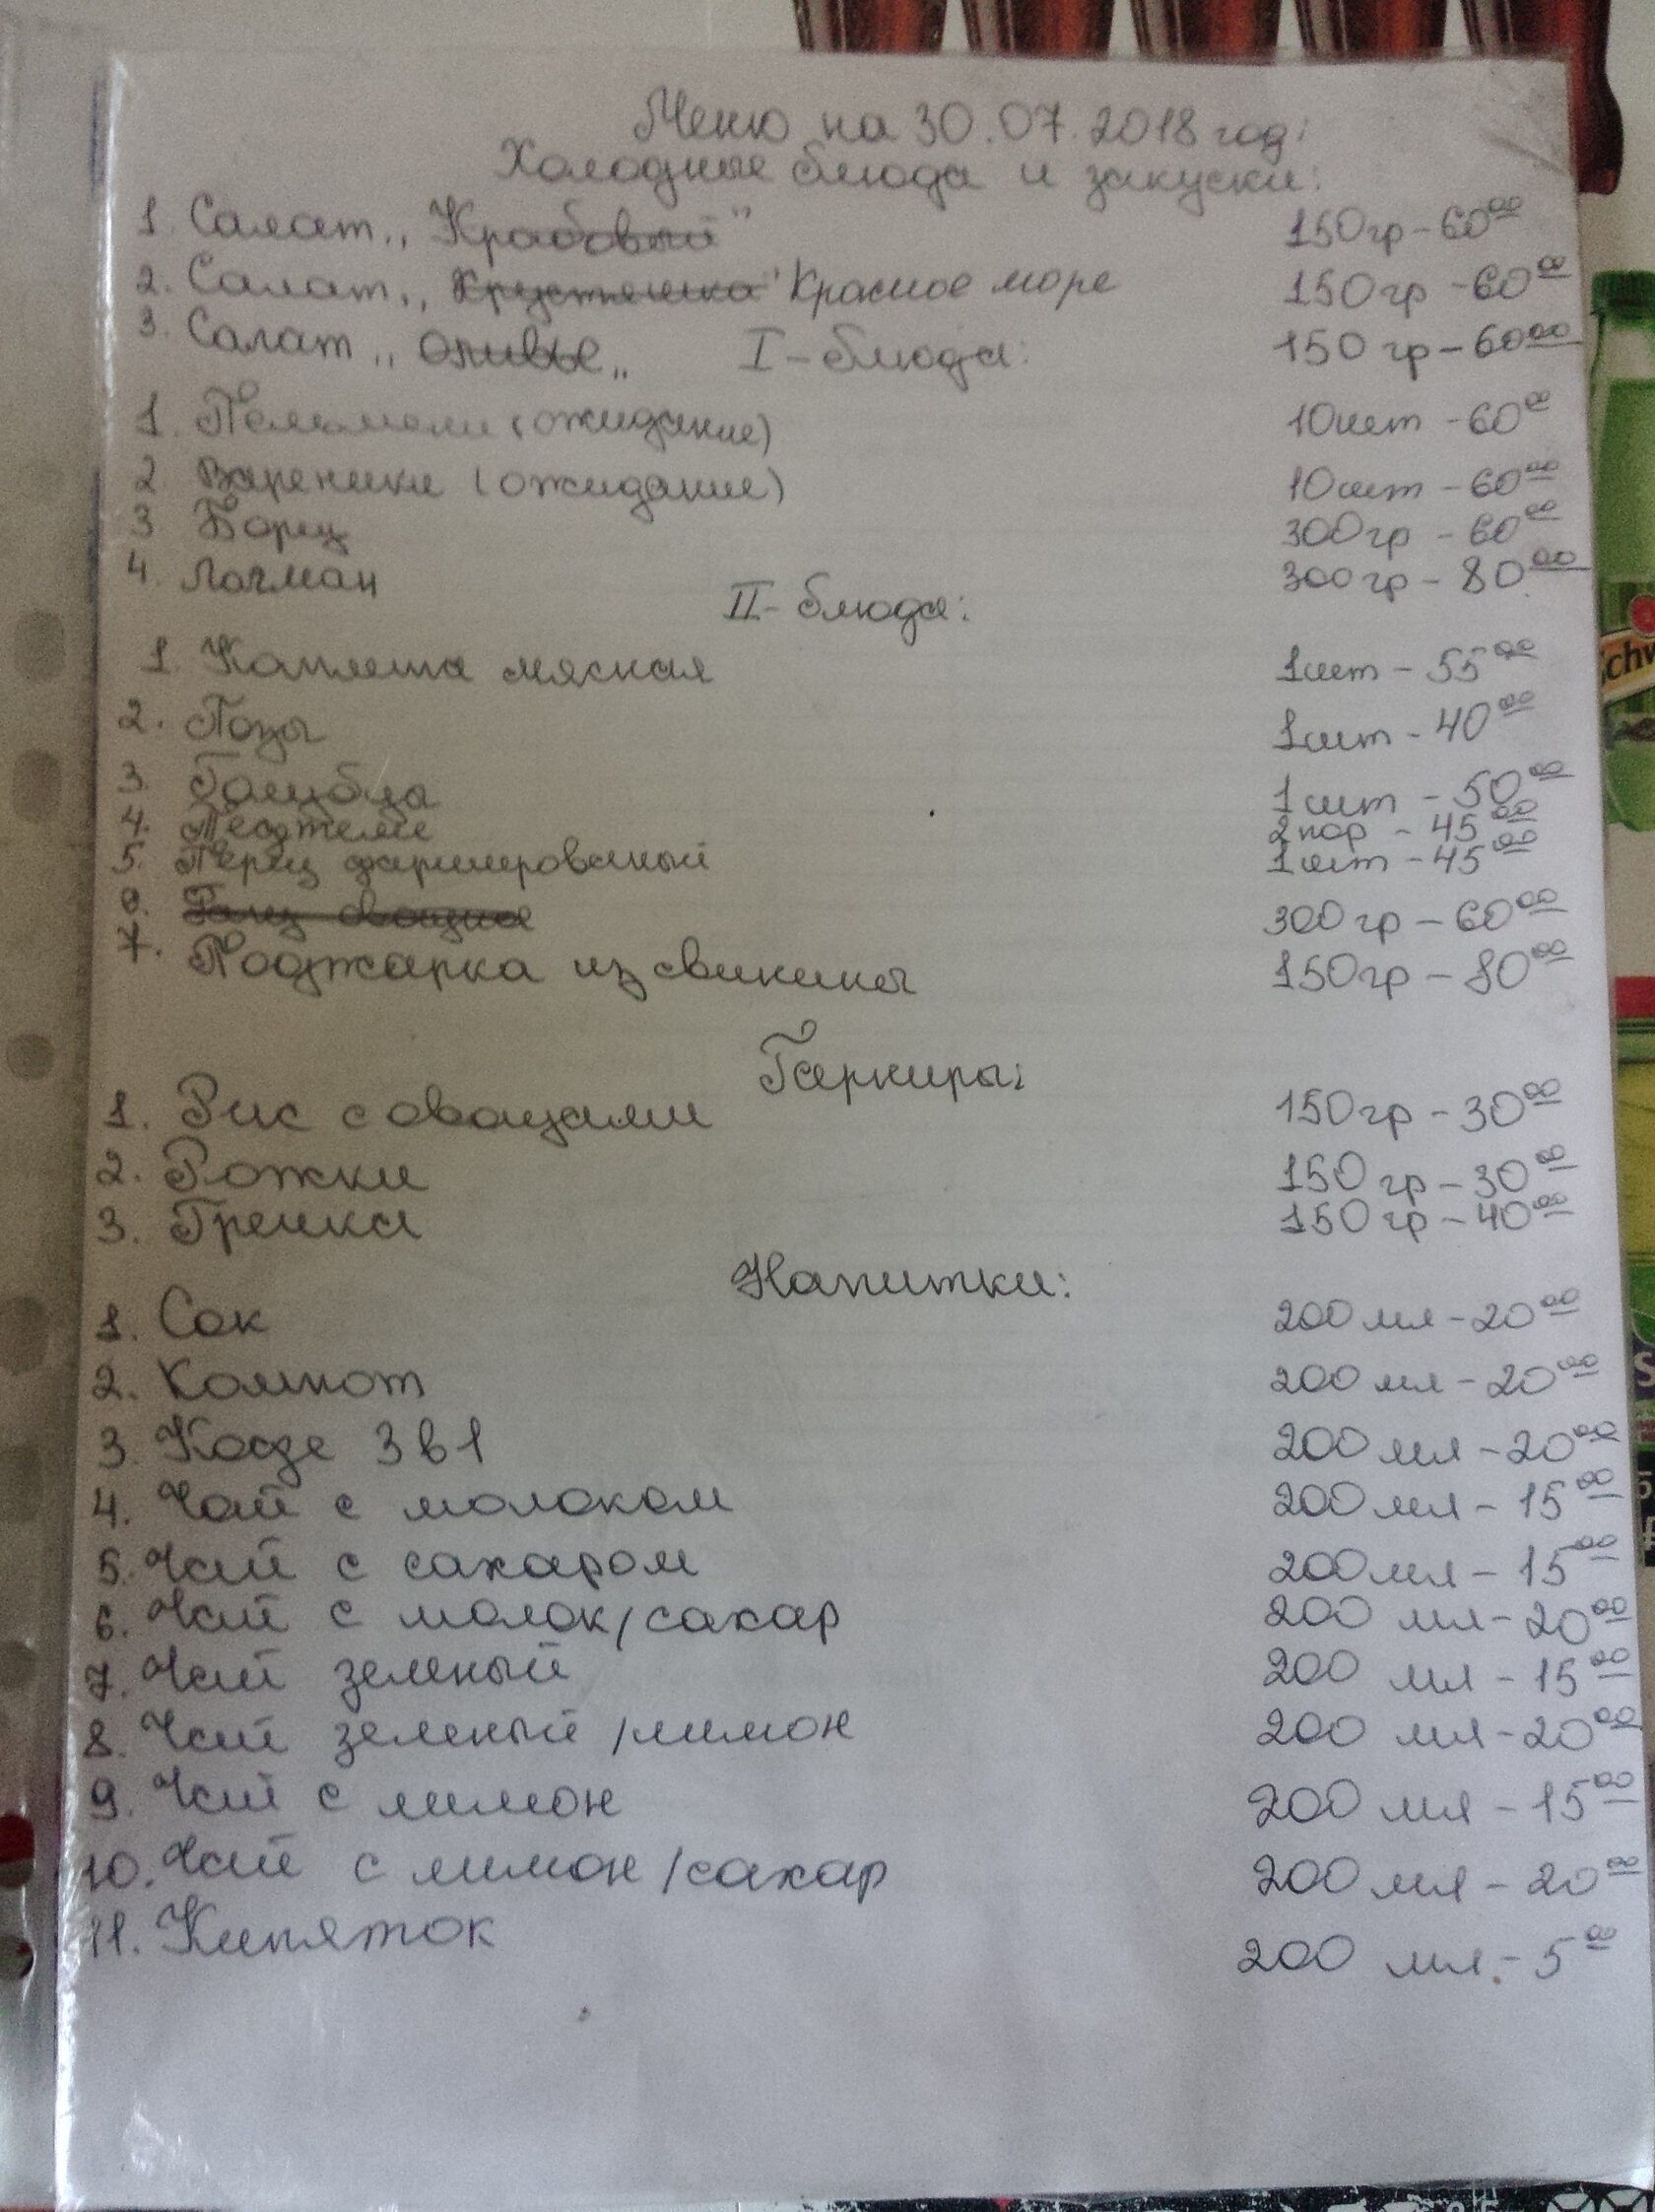 Меню на 30.07.2018 год:
Холодные блюда и закуски:
1. Салат „Крабовый" 150гр - 60 00
2. Салат „Хрустяшка" Красное море 150гр - 60 00
3. Салат „Оливье„ 150 гр - 60 00
I - блюда:
1. Пельмени (ожидание) 10шт - 60 00
2. Вареники (ожидание) 10шт - 60 00
3 Борщ 300гр - 60 00
4. Лагман 300гр - 80 00
II - блюда:
1. Котлета мясная 1шт - 55 00
2. Позы 1шт - 40 00
3. 1шт - 50 00
4. 2пор - 45 00
5. Перец фаршированый 1шт - 45 00
6. 300гр - 60 00
7. Поджарка из свинины 150гр - 80 00
Гарниры:
1. Рис с овощами 150гр - 30 00
2. Рожки 150 гр - 30 00
3. Гречка 150 гр - 40 00
Напитки:
1. Сок 200 мл - 20 00
2. Компот 200 мл - 20 00
3. Кофе 3 в 1 200 мл - 20 00
4. Чай с молоком 200 мл - 15 00
5. Чай с сахаром 200мл - 15 00
6. Чай с молок/сахар 200 мл - 20 00
7. Чай зеленый 200 мл - 15 00
8. Чай зеленый /лимон 200 мл - 20 00
9. Чай с лимон 200 мл - 15 00
10. Чай с лимон /сахар 200 мл - 20 00
11. Кипяток 200 мл. - 5 00
Schw